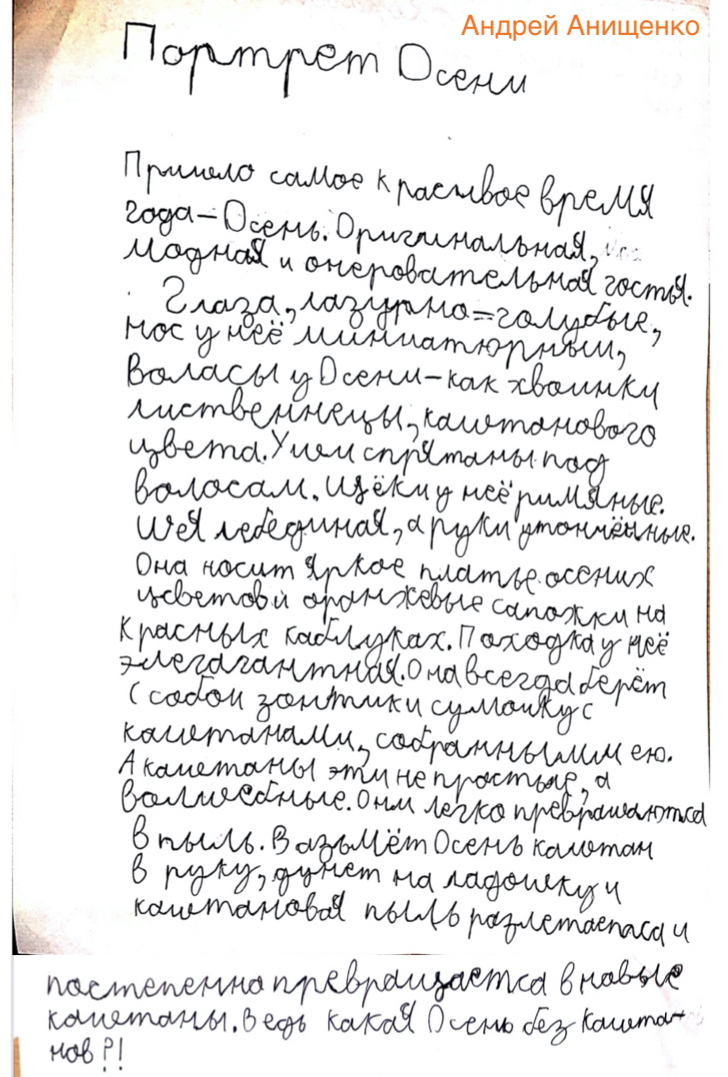 Андрей Анищенко
Портрет Осени
Пришло самое красивое время
года – Осень. Оригинальная,
модная и очеровательная гостья.
Глаза, лазурно=голубые,
нос у неё миниатюрный,
Воласы у Осени – как хвоинки
лиственнецы, каштанового
цвета. Уши спрятаны под
волосам. Щёки у неё румяные.
Шея лебединая, а руки утончённые.
Она носит яркое платье осених
цветов и оранжевые сапожки на
красных каблуках. Походка у неё
элегагантная. Она всегда берёт
с собой зонтик и сумочку с
каштанами, собранными ею.
А каштаны эти не простые, а
волшебные. Они легко превращаются
в пыль. Вазьмёт Осень каштан
в руку, дунет на ладошку и
каштановая пыль разлетается и
постепенно превращается в новые
каштаны. Ведь какая Осень без кашта-
нов?!